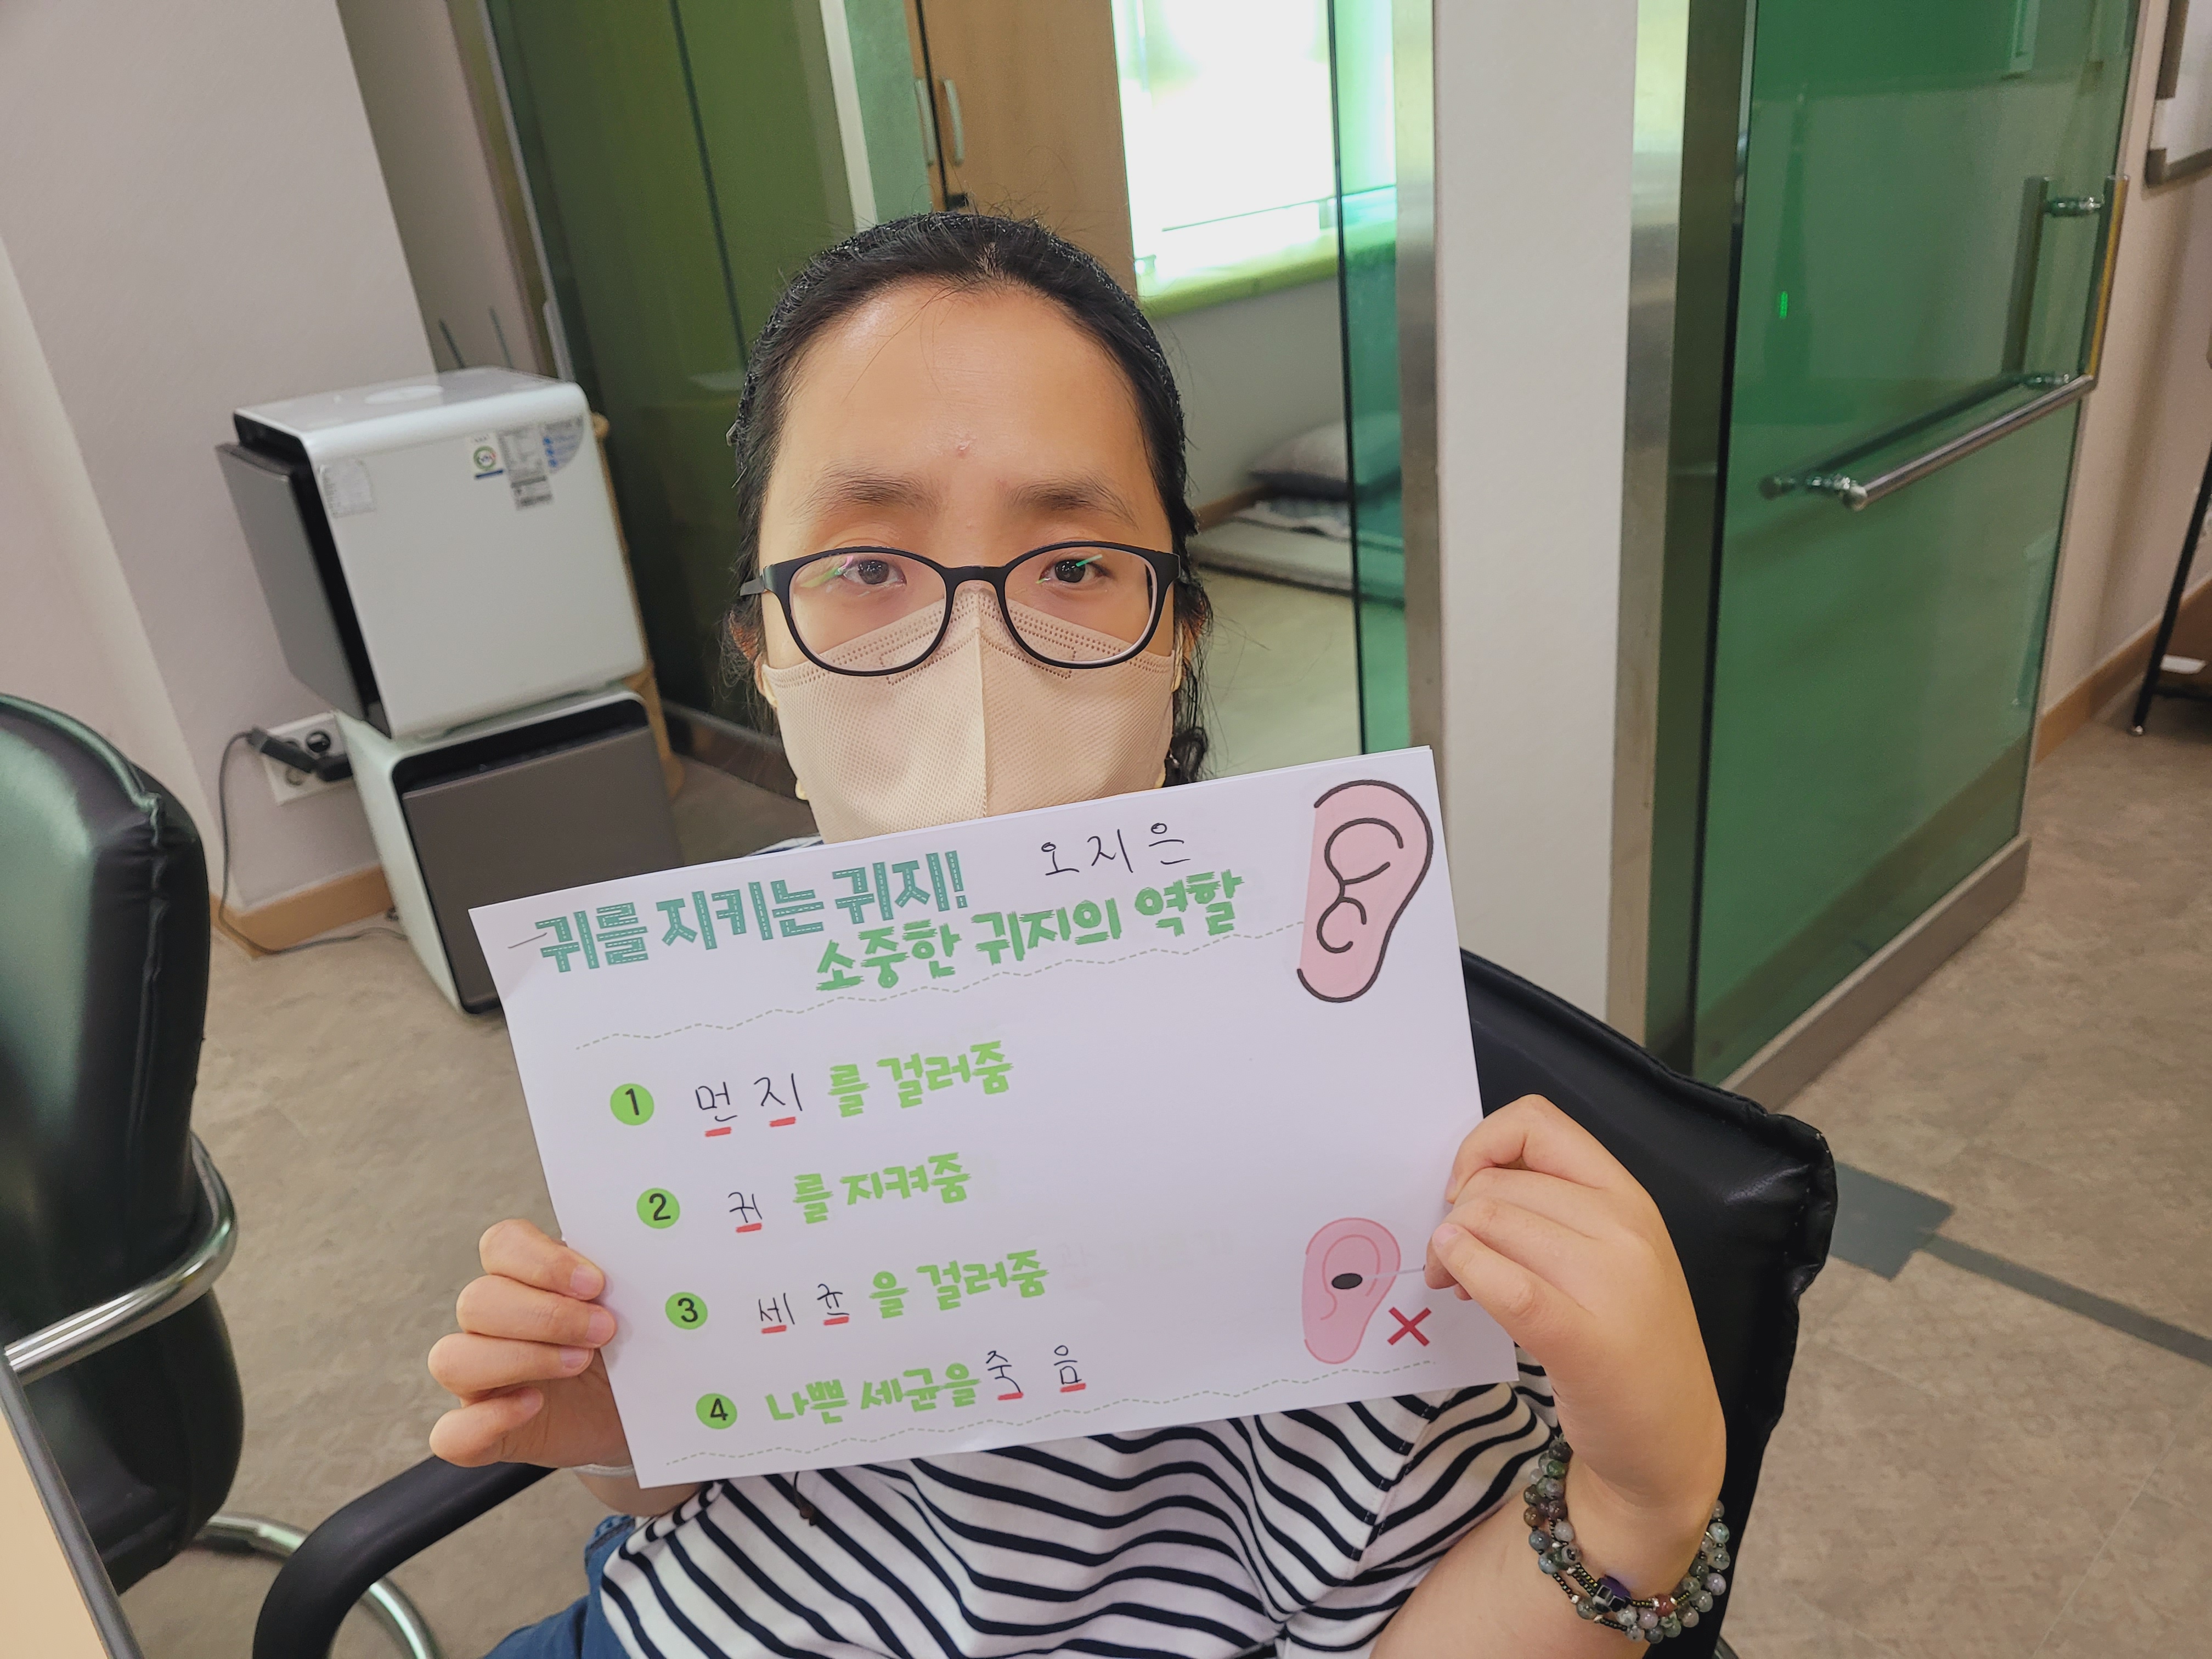 오지은
귀를 지키는 귀지!
소중한 귀지의 역할
1 먼지를 걸러줌
2 귀를 지켜줌
3 세균을 걸러줌
4 나쁜 세균을 죽음